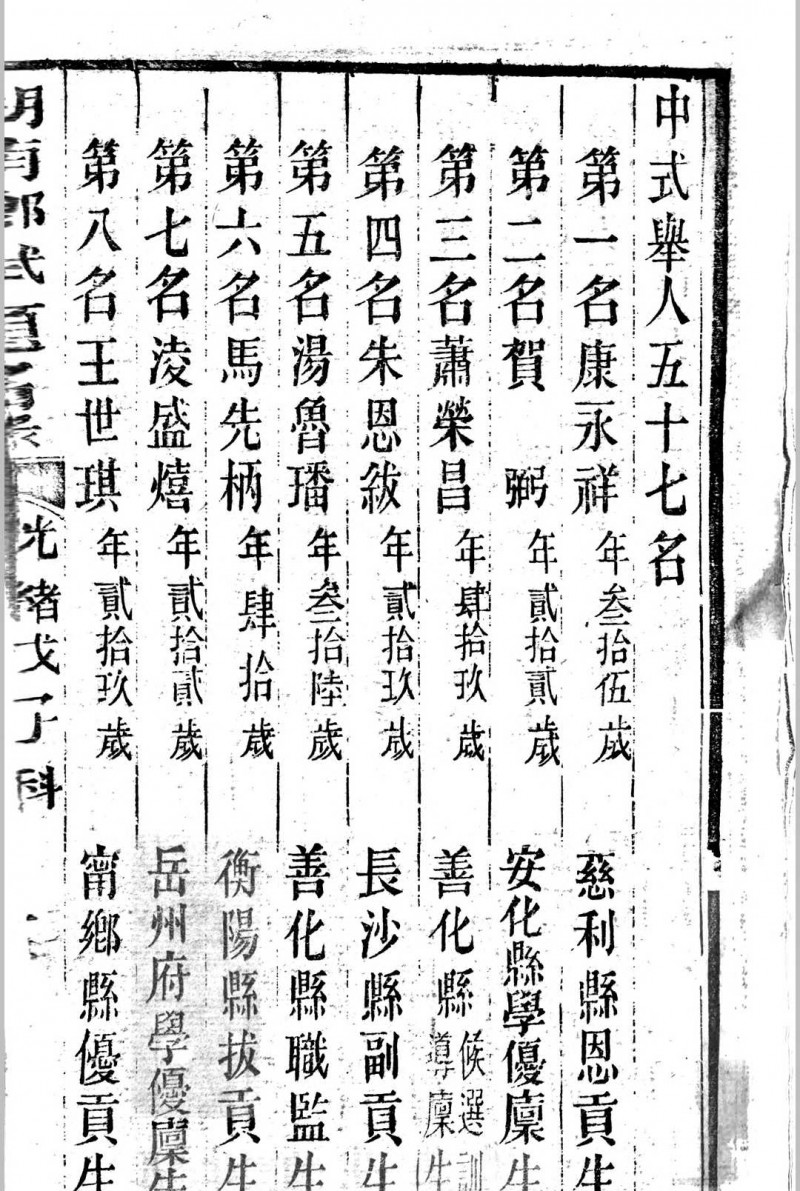 中式舉人五十七名
第一名康永祥年叁拾伍歲慈利縣恩貢生
第二名賀弼年貳拾貳歲安化縣學優廩生
第三名蕭榮昌年肆拾玖歲善化縣候選訓導廩生
第四名朱恩紱年貳拾玖歲長沙縣副貢生
第五名湯魯璠年叁拾陸歲善化縣職監生
第六名馬先柄年肆拾歲衡陽縣拔貢生
第七名凌盛熺年貳拾貳歲岳州府學優廩生
第八名王世琪年貳拾玖歲甯鄉縣優貢生
光緒戊子科